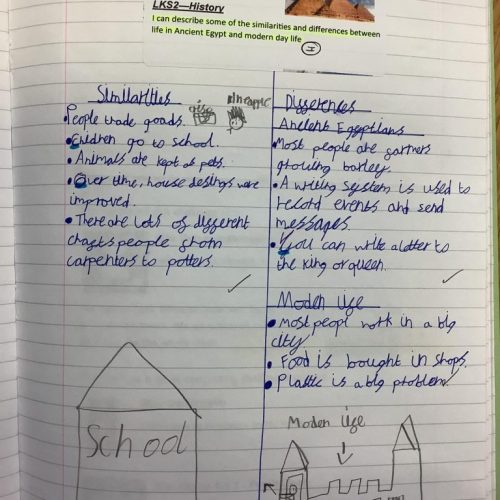 LKS2—History
I can describe some of the similarities and differences between
life in Ancient Egypt and modern day life
I
Similarities
People trade goods.
pineapple
• Children go to school.
• Animals are kept as pets.
• Over time, house desings were
improved.
• There are lots of different
people from
carpenters to potters.
School
Differences
Ancient Egyptians
• Most people are farmers
growing barley.
• A writing system is used to
record events and send
messages.
• You can write a letter to
the king or queen.
Moden life
• Most peopl work in a big
city
• Food is bought in shops.
• Plastic is a big problem
Moden life